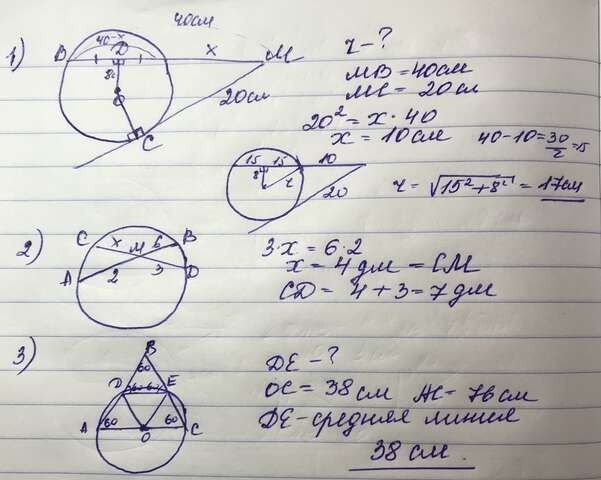 40см
1) B 40-x D x M
8
O
20см
C
r - ?
MB = 40см
MC = 20см
20² = x · 40
x = 10см 40-10=30/2=15
15 15 10
8 r
20
r = √15²+8² = 17см
2) C x M 6 B
A 2 3 D
3·x = 6·2
x = 4 дм = CM
CD = 4 + 3 = 7 дм
3) B
60
D 60 60 E
A 60 O 60 C
DE - ?
OC = 38 см AC - 76 см
DE - средняя линия
38 см.